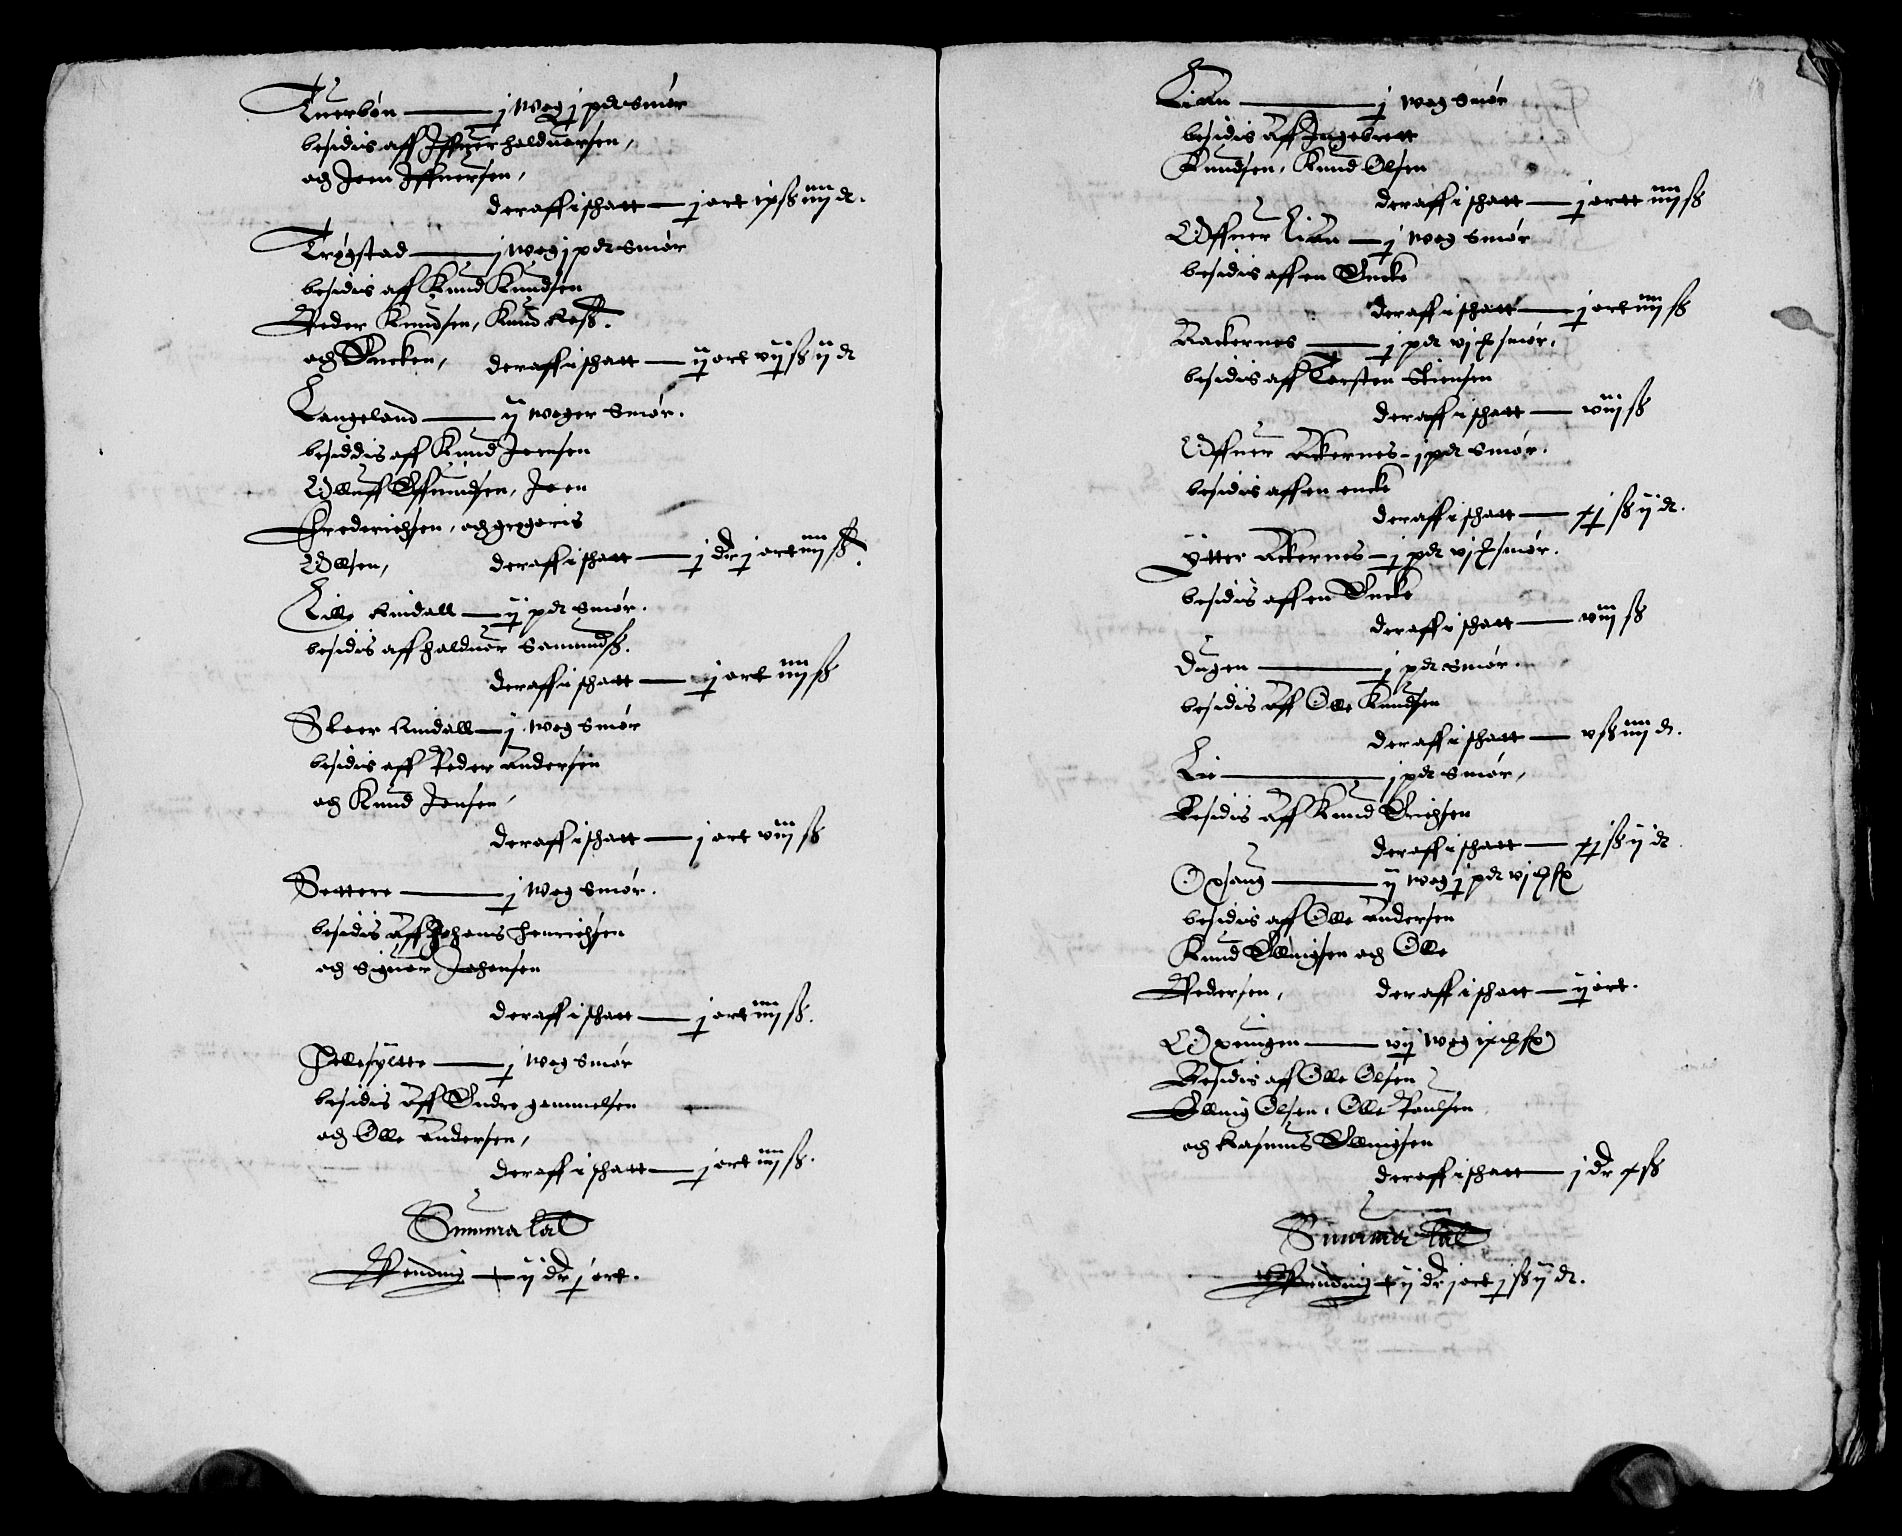 Tuerbøn — j wog j pdt smør
besidis aff Iffuer halduorsen,
och Joen Iffuersen,
deraff i schatt — j ort ix ß iiij d.
Trøgstad — j wog j pdt smør
besidis aff Knud Knudsen
Peder Knudsen, Knud
och Encken, deraff i schatt — ij ort vij ß ij d
Langeland — ij woger smør.
besiddis aff Knud Joensen
Olluff Effuindsen, Joen
Frederichsen, och gregoris
Ollsen, deraff i schatt — j dr j ort iiij ß.
Lille Kindall — ij pdt smør.
besidis aff halduor Samundß.
deraff i schatt — j ort iiij ß
Stoer Kindall — j wog smør
besidis aff Peder Andersen
och Knud Jensen,
deraff i schatt — j ort viij ß
Settere — j wog smør.
besidis aff Johans Henrichsen
och Signor Johansen
deraff i schatt — j ort iiij ß.
Hellesyltte — j wog smør
besidis aff Endre gammelsen
och Olle Andersen,
deraff i schatt — j ort iiij ß.
Summa lat
Pending — ij dr j ort.
Lian — j wog smør
besidis aff Ingebrett
Knudsen, Knud Olsen
deraff i schatt — j ortt iiij ß
Offuer Lian — j wog smør
besidis aff en Encke
deraff i schatt — j ort iiij ß
Rackernes — j pdt vj smør.
besidis aff Torsten Stensen
deraff i schatt — viij ß
Offuer Ackernes — j pdt smør.
besidis aff en encke
deraff i schatt — xj ß ij d.
Ytter Ackernes — j pdt vj smør.
besidis aff en Encke
deraff i schatt — viij ß
Dugen — j pdt smør.
besidis aff Olle Knudsen
deraff i schatt — v ß iiij d.
Lie — j pdt smør,
Besidis aff Knud Erichsen
deraff i schatt — xj ß ij d.
Oxsaug — ij wog j pdt vj
besidis aff Olle Andersen
Knud Ellingsen och Olle
Pedersen, deraff i schatt — ij ort.
Oxuigen — vij wog ix
Besidis aff Olle Olsen
Elling Olsen, Olle Poulsen
och Rasmus Ellingsen
deraff i schatt — j dr x ß
Summa lat
Pending — ij dr j ort j ß ij d.